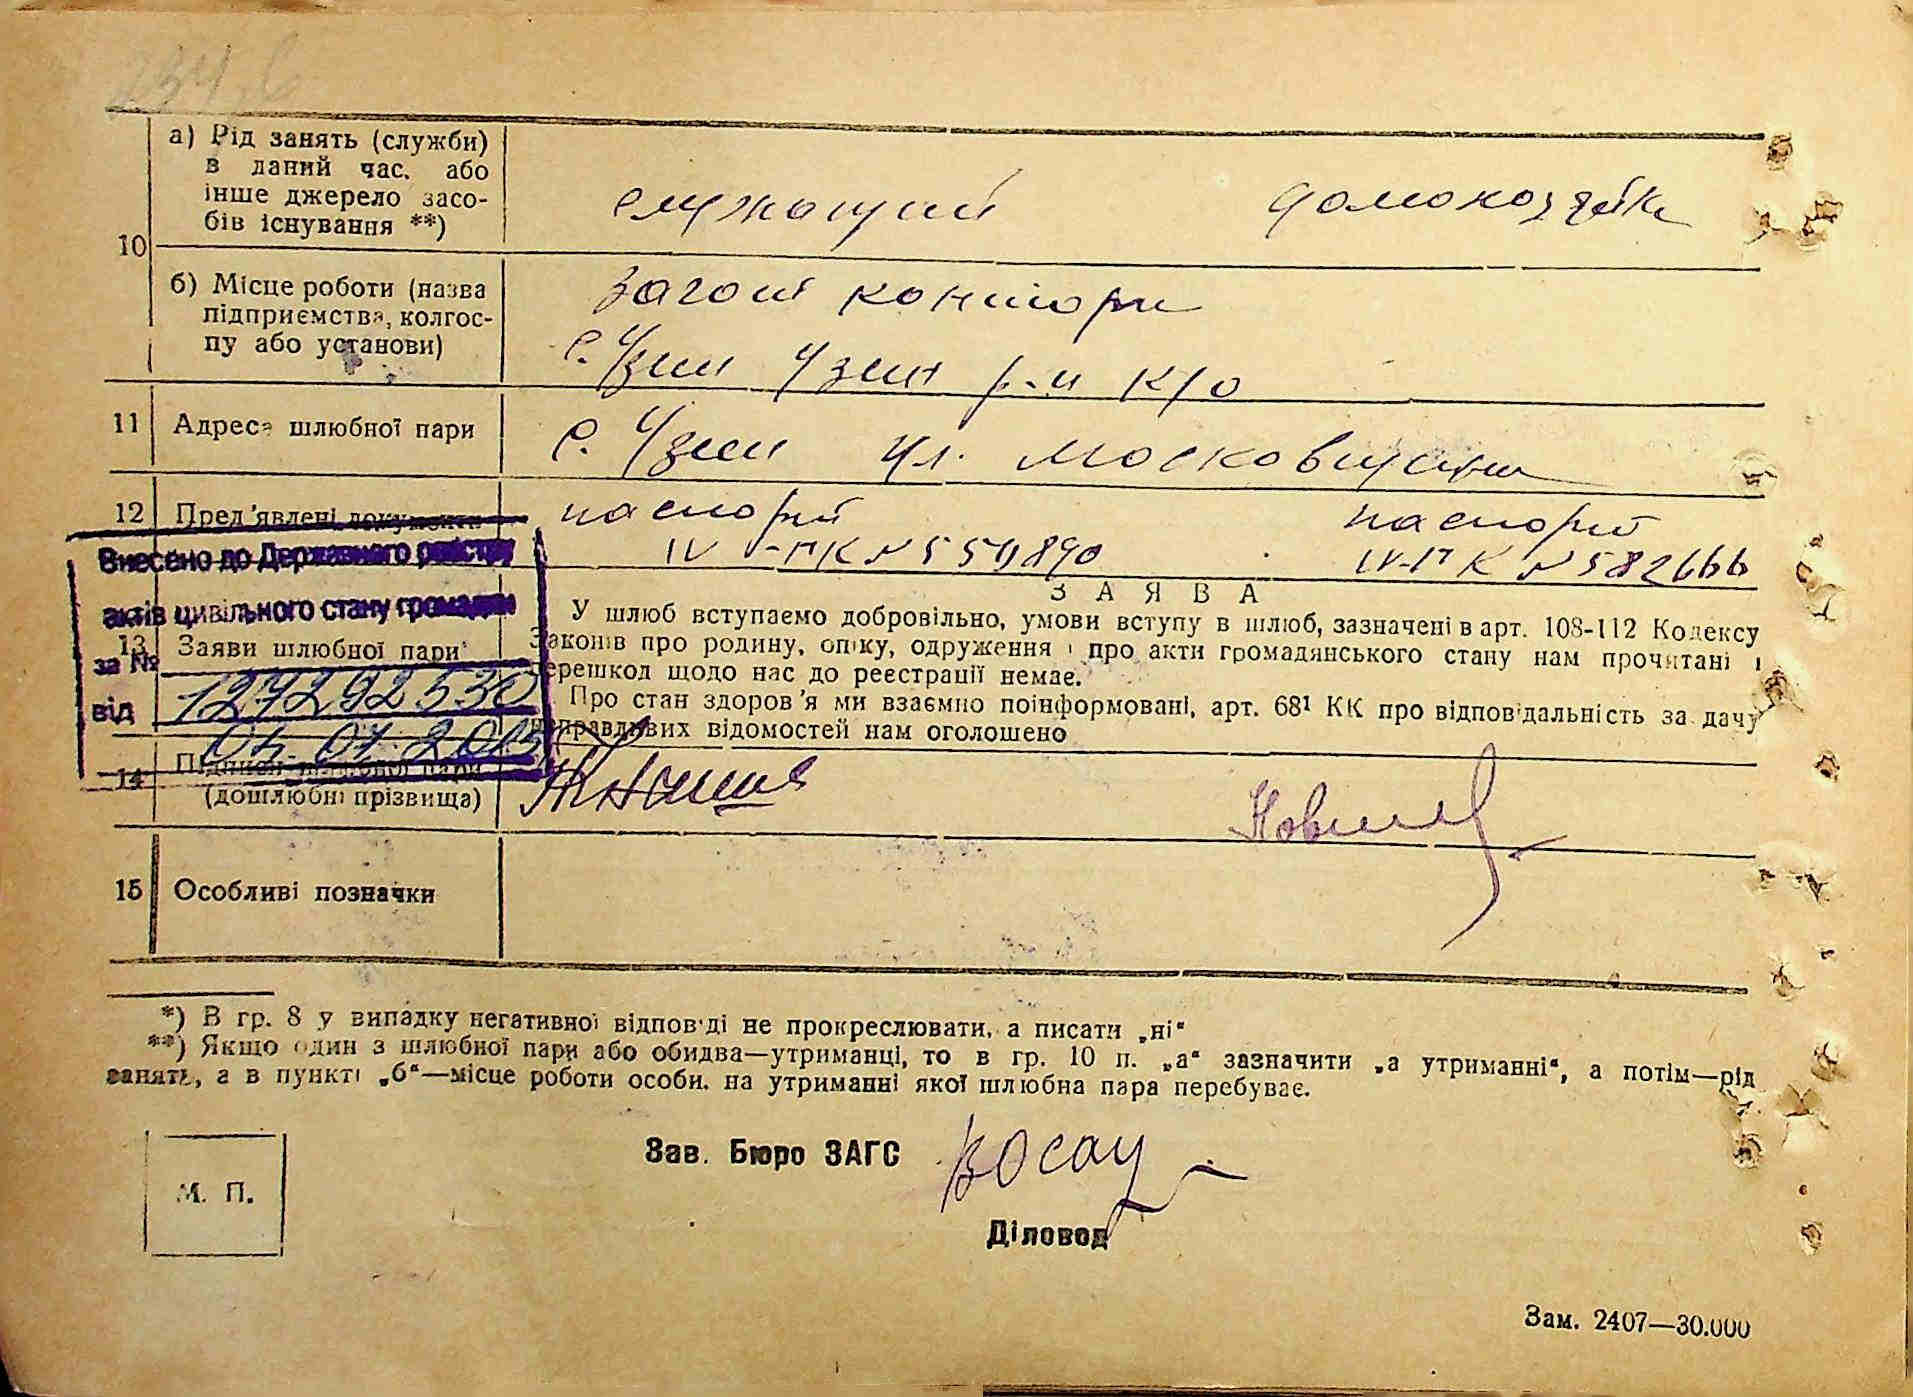 а) Рід занять (служби)
в даний час, або
інше джерело засо-
бів існування **)
служащий домохозяйка
10
б) Місце роботи (назва
підприємства, колгос-
пу або установи)
Загот контори
с. Узин Узин р-н К/о
11 Адреса шлюбної пари
с. Узин ул.
12 Пред'явлені документи
паспорт паспорт
IV-ПК № 582666
Внесено до Державного реєстру
актів цивільного стану громадян
за №
127292530
від
13 Заяви шлюбної пари
ЗАЯВА
У шлюб вступаемо добровільно, умови вступу в шлюб, зазначені в арт. 108-112 Кодексу
Законів про родину, опіку, одруження і про акти громадянського стану нам прочитані і
перешкод щодо нас до реєстрації немає.
Про стан здоров'я ми взаємно поінформовані, арт. 68¹ КК про відповідальність за дачу
неправдивих відомостей нам оголошено
14 Підписи шлюбної пари
(дошлюбні прізвища)
15 Особливі позначки
*) В гр. 8 у випадку негативної відповіді не прокреслювати, а писати „ні“
**) Якщо один з шлюбної пари або обидва—утриманці, то в гр. 10 п. „а“ зазначити „а утриманні“, а потім—рід
занять, а в пункті „б“—місце роботи особи, на утриманні якої шлюбна пара перебуває.
Зав. Бюро ЗАГС
М. П.
Діловод
Зам. 2407—30.000